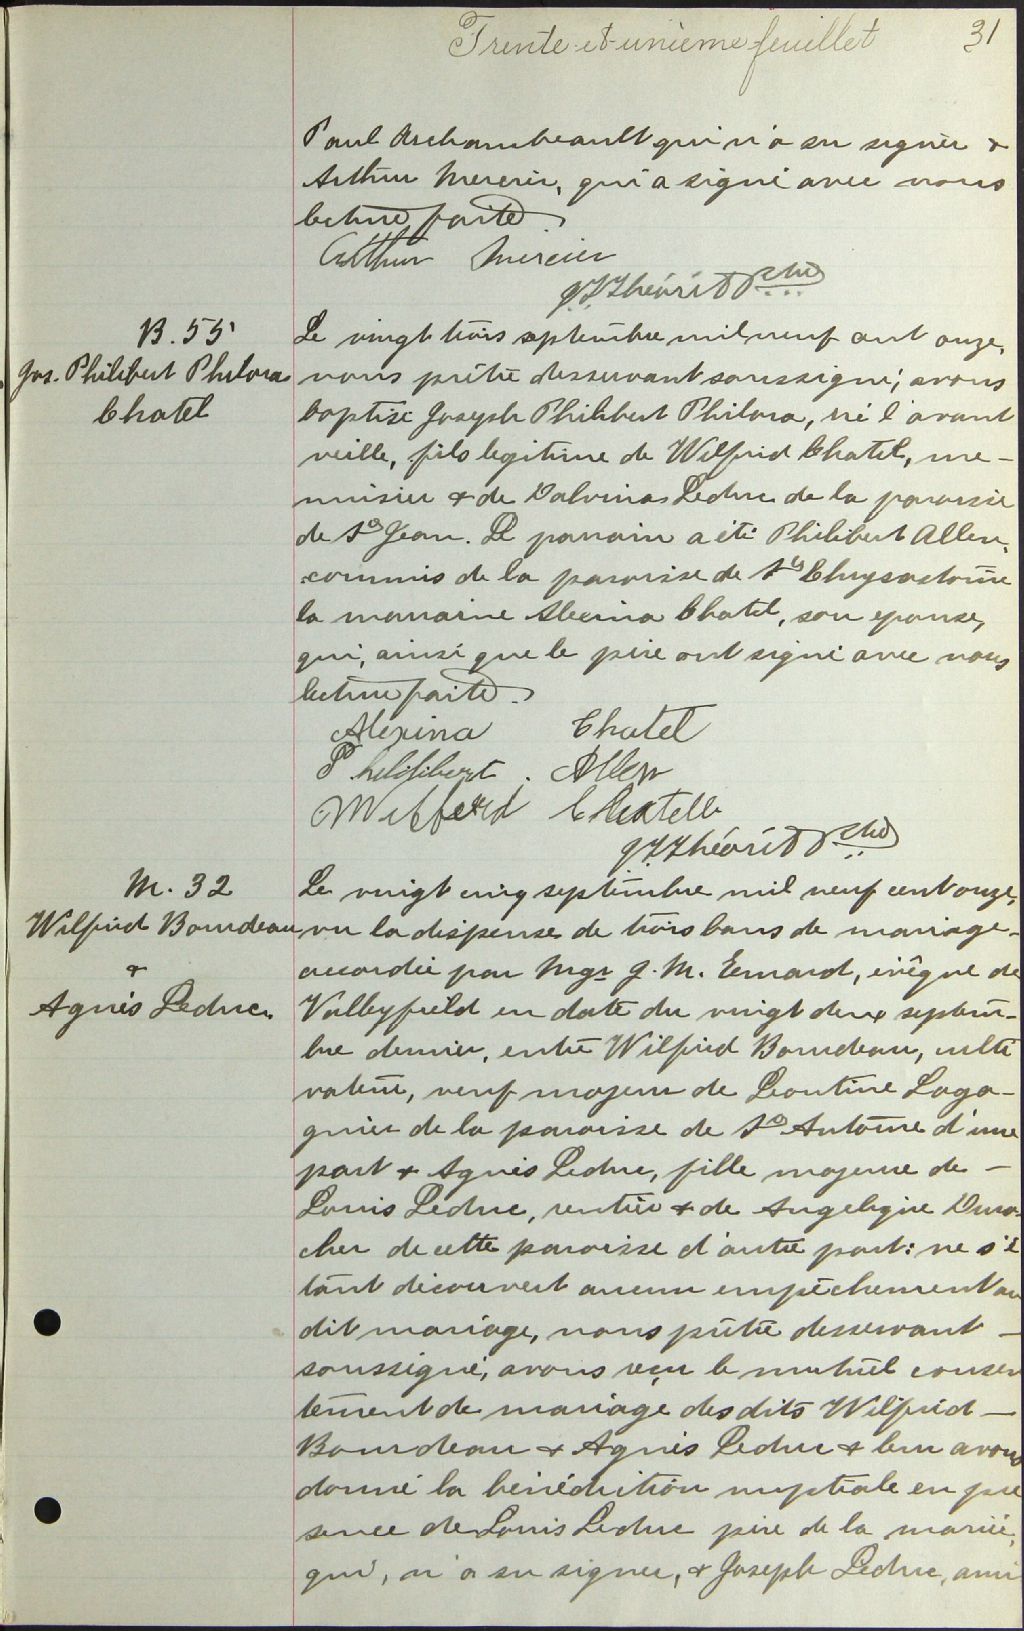 Trente-et-unième feuillet 31
Paul Archambeault qui n'a su signer &
Arthur Mercier, qui a signé avec nous
lecture faite.
Arthur Mercier
J. Théorêt Ptre
B. 55
Jos. Philibert Philora
Chatel
Le vingt trois septembre mil neuf cent onze,
nous prêtre desservant soussigné, avons
baptisé Joseph Philibert Philora, né l'avant
veille, fils legitime de Wilfrid Chatel, me-
nuisier & de Valvina Leduc de la paroisse
de St Jean. Le parrain a été Philibert Allen,
commis de la paroisse de St Chrysostome
la marraine Alexina Chatel, son epouse,
qui, ainsi que le père ont signé avec nous
lecture faite.
Alexina Chatel
Philibert Allen
Wilfrid Chatelle
J. Théorêt Ptre
M. 32
Wilfrid Bourdeau
&
Agnès Leduc
Le vingt cinq septembre mil neuf cent onze,
vu la dispense de trois bans de mariage
accordée par Mgr J. M. Emard, évêque de
Valleyfield en date du vingt deux septem-
bre dernier, entre Wilfrid Bourdeau, culti
vateur, veuf majeur de Leontine Laga-
gnier de la paroisse de St Antoine d'une
part & Agnès Leduc, fille majeure de —
Louis Leduc, rentier & de Angelique Duro-
cher de cette paroisse d'autre part: ne s'é
tant découvert aucun empêchement au
dit mariage, nous prêtre desservant —
soussigné, avons reçu le mutuel consen
tement de mariage desdits Wilfrid —
Bourdeau & Agnès Leduc & leur avons
donné la bénédiction nuptiale en pré
sence de Louis Leduc père de la mariée,
qui, n'a su signer, & Joseph Leduc, ami